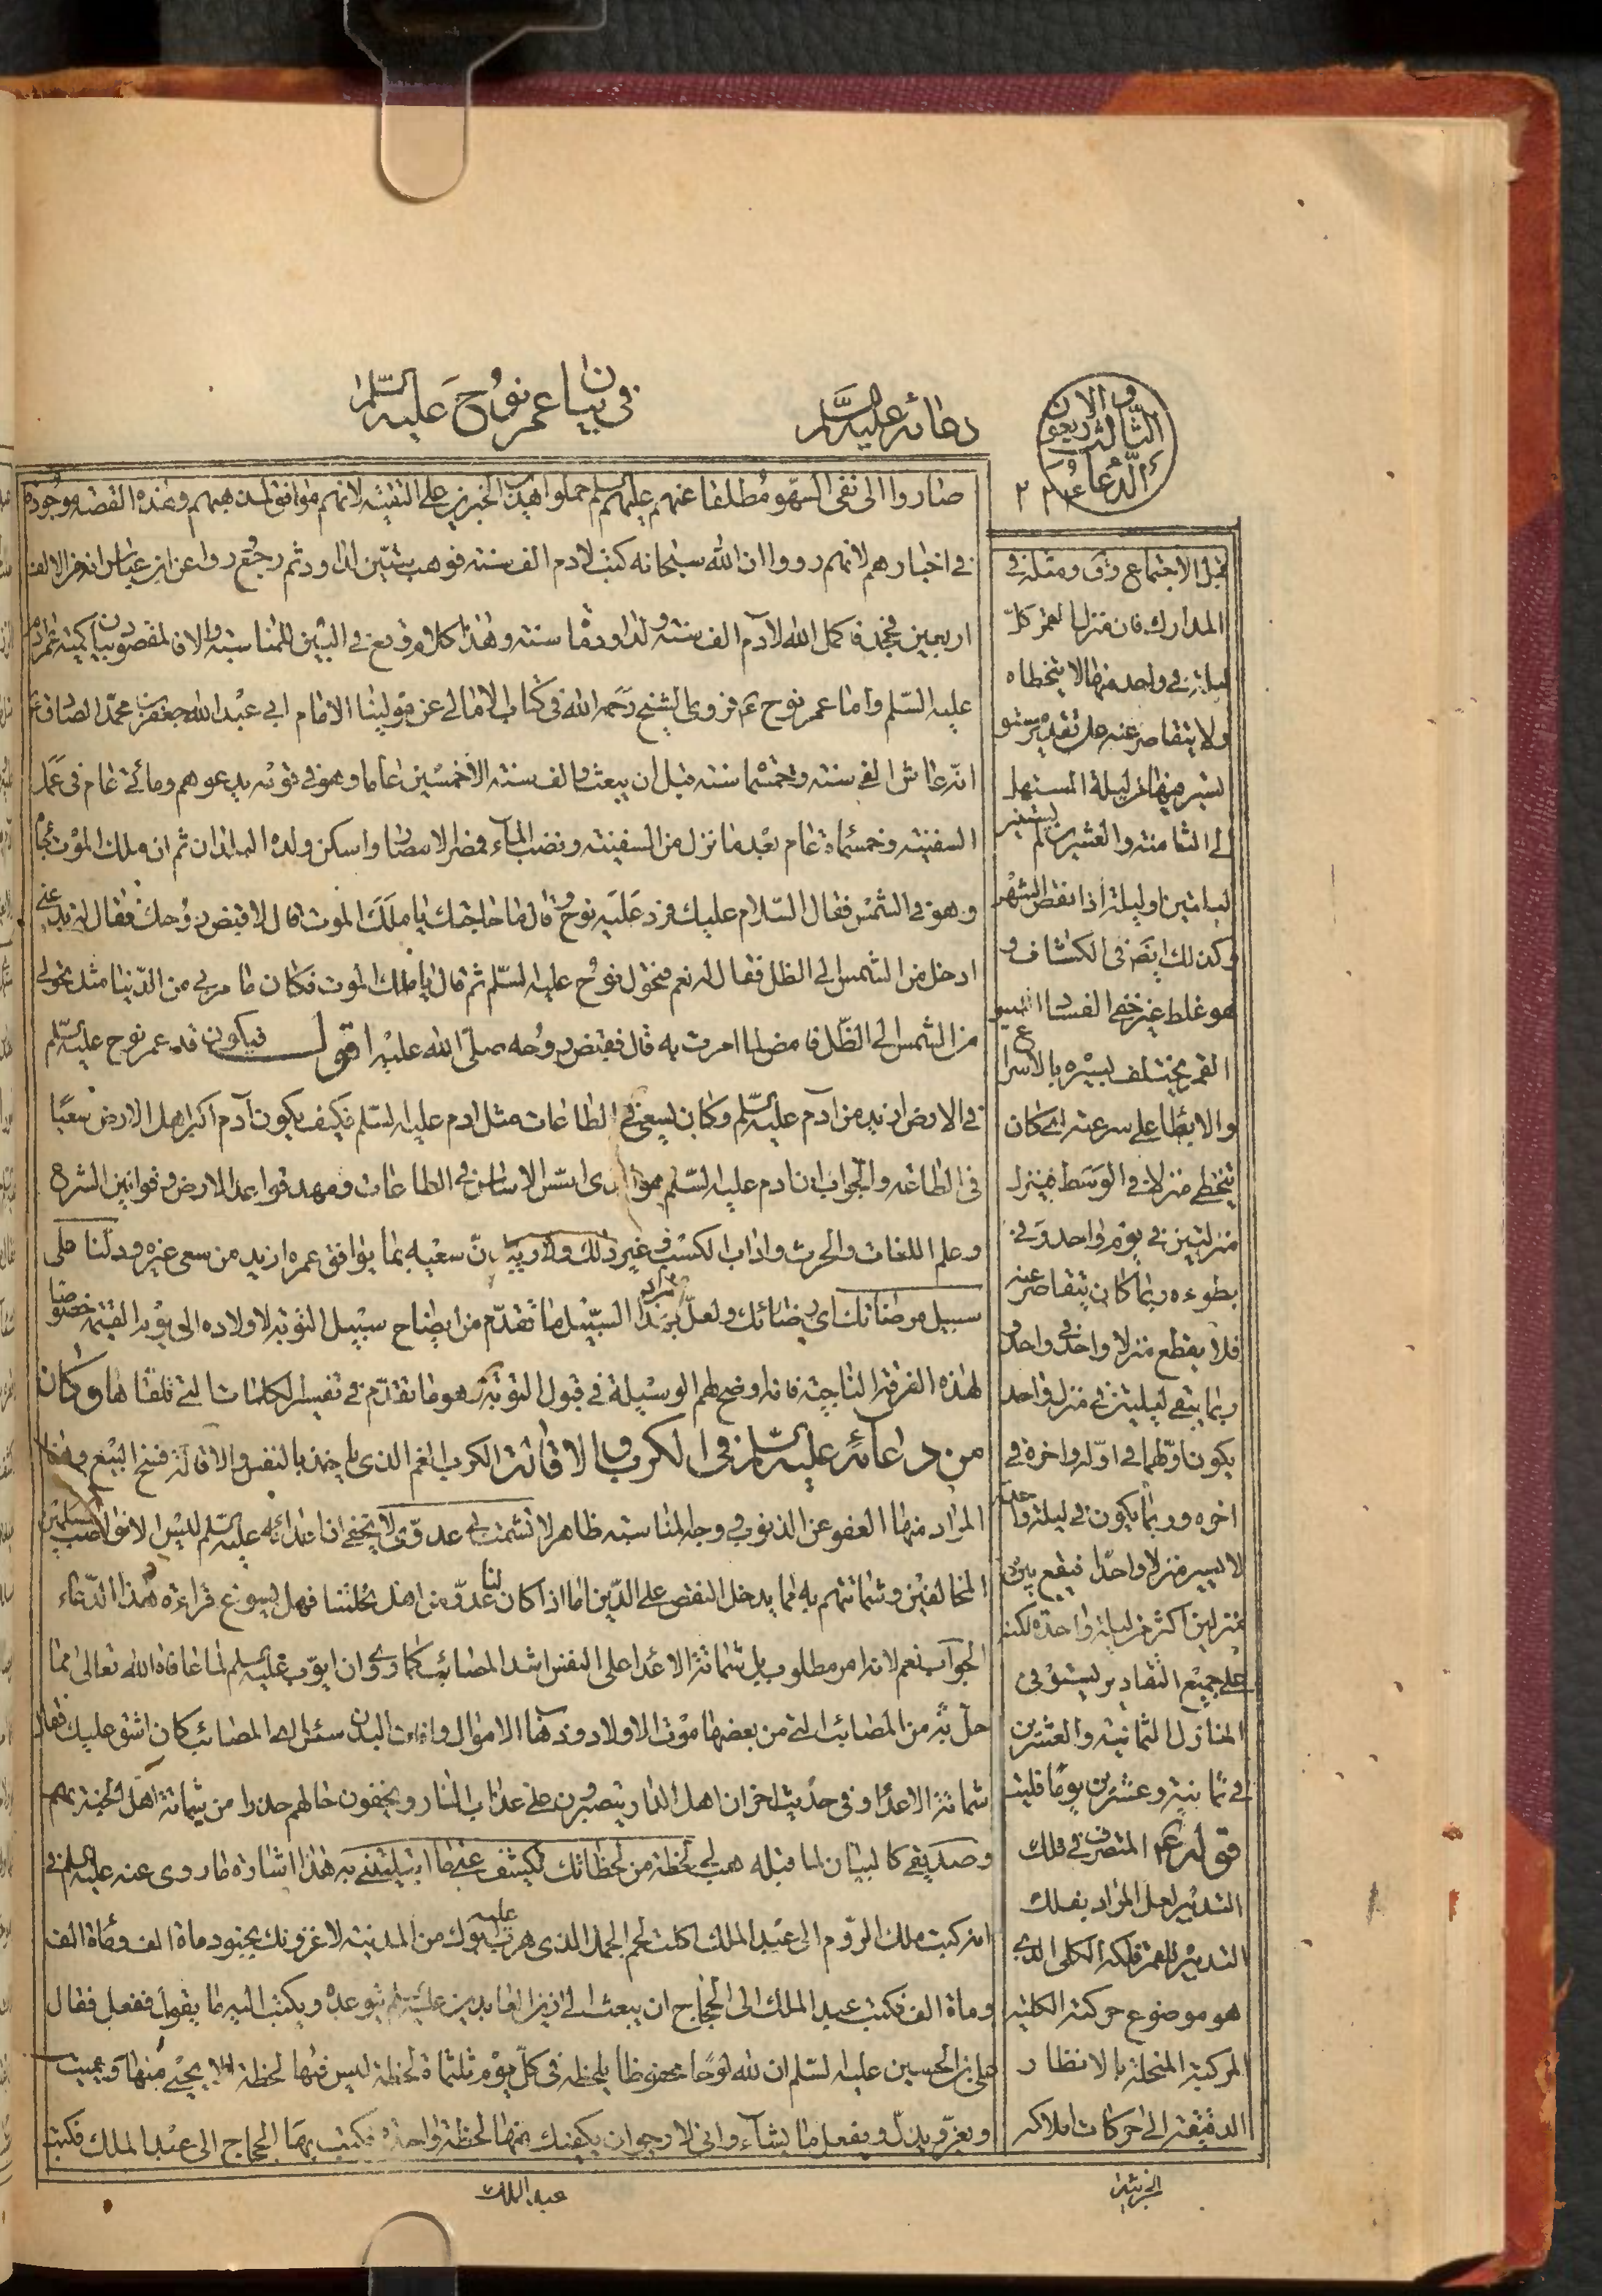 في بيان عمر نوح عليه السلم
دعائه عليه السلم
الدعاء الثالث والاربعون
٢٢٤
صاروا الى نفى السهو مطلقا عنهم عليهم السلم حملوا هذين الخبرين على التقية لانهم موافق لمذهبهم وهذه القصة موجودة
في اخبارهم لانهم رووا ان الله سبحانه كتب لادم الف سنة فوهب ستين لداود ثم رجع روا عن ابن عباس انه من الالف
اربعين فجحد فاكمل الله لآدم الف سنة ولداود مأة سنة وهذا كلام وقع في البين للمناسبة والا فالمقصود بيان كمية عمر ادم
عليه السلم واما عمر نوح ع فروى الشيخ رحمه الله في كتاب الامالي عن مولينا الامام ابي عبد الله جعفر بن محمد الصادق ع
انه عاش الفي سنة وخمسمأة سنة قبل ان يبعث والف سنة الا خمسين عاما وهو في قومه يدعوهم ومأتي عام في عمل
السفينة وخمسمأة عام بعد ما نزل من السفينة ونضب الماء فمصر الامصار واسكن ولده البلدان ثم ان ملك الموت جاء
وهو في الشمس فقال السلام عليك فرد عليه نوح وقال ما حاجتك يا ملك الموت قال لاقبض روحك فقال له تدعني
ادخل من الشمس الى الظل فقال له نعم فتحول نوح عليه السلم ثم قال يا ملك الموت فكان ما مر بي من الدنيا مثل تحولي
من الشمس الى الظل فامض لما امرت به قال فقبض روحه صلى الله عليه اقول فيكون قد عمر نوح عليه السلم
في الارض ازيد من آدم عليه السلم وكان يسعى في الطاعات مثل ادم عليه السلم فكيف يكون آدم اكبر اهل الارض سعيا
في الطاعة والجواب ان ادم عليه السلم هو الذى اسس الاساس في الطاعات ومهد قواعد الارض وقوانين الشرع
وعلم اللغات والحرث واداب الكسب وغير ذلك ولا ريب ان سعيه بما يوافق عمره ازيد من سعى غيره ودلنا على
سبيل مرضاتك اي رضائك ولعل المراد بهذا السبيل ما تقدم من ايضاح سبيل التوبة لاولاده الى يوم القيمة خصوصا
لهذه الفرقة الناجية فانه اوضح لهم الوسيلة في قبول التوبة وهو ما تقدم في تفسير الكلمات التي تلقاها وكان
من دعائه عليه السلم في الكرب والاقالة الكرب الغم الذى ياخذ بالنفس والاقالة فسخ البيع وهنا
المراد منها العفو عن الذنوب ووجه المناسبة ظاهر لا تشمت بي عدوي لا يخفى ان اعدائه عليه السلم ليس الا نواصب المسلمين
المخالفين وشماتتهم به مما يدخل النقص على الدين اما اذا كان لنا عدو من اهل نحلتنا فهل يسوغ قراءة هذا الدعاء
الجواب نعم لانه امر مطلوب بل شماتة الاعدا على النفس اشد المصائب كما روى وان ايوب عليه السلم لما عافاه الله تعالى مما
حل به من المصائب التي من بعضها موت الاولاد وذهاب الاموال البدن سئل اي المصائب كان اشق عليك فقال
شماتة الاعداء وفي حديث اخر ان اهل النار يتصبرون على عذاب النار ويخفون حالهم حذرا من شماتة اهل الجنة بهم
وصديقي كالبيان لما قبله هب لي لحظة من لحظاتك تكشف عني ما ابتليتني به هذا اشارة ما روى عنه عليه السلم في
انه كتب ملك الروم الى عبد الملك اكلت لحم الجمل الذى هرب عليه ابوك من المدينة لاغزونك بجنود مأة الف ومأة الف
ومأة الف فكتب عبد الملك الى الحجاج ان يبعث الى زين العابدين عليه السلم يتوعده ويكتب اليه ما يقول ففعل فقال
علي بن الحسين عليه السلم ان لله لوحا محفوظا يلحظه في كل يوم ثلثمأة لحظة ليس فيها لحظة الا يحيي منها ويميت
ويعز ويذل ويفعل ما يشاء واني لارجو ان يكفيك منها لحظة واحدة فكتب بها الحجاج الى عبد الملك فكتب
عبد الملك
قبل الاجتماع وق ومثله في
المدارك فان منزلها القمر كل
ليلة في واحد منها لا يتخطاه
ولا يتقاصر عنه على تقدير مستو
يسير فيها من ليلة المستهل
الى الثامنة والعشرين ثم يستتر
ليلتين او ليلة اذا نقص الشهر
وكذلك ايضا في الكشاف و
هو غلط غير خفى الفساد اذ سير
القمر يختلف بسيره بالاسراع
والابطا على سرعته اى كان
يتخطى منزلا في الوسط فينزل
منزلتين في يوم واحد وفي
بطوءه ربما كان يتقاصر عنه
فلا يقطع منزلا واحد في واحد و
ربما يبقى ليلتين في منزل واحد
يكون اولهما في اوله واخره في
اخره وربما يكون في ليلة واحدة
لا يسير منزلا واحدا فيقع بين
منزلين اكثر من ليلة واحدة لكنه
على جميع التقادير يستوفي
المنازل الثمانية والعشرين
في ثمانية وعشرين يوما وليلة
قوله ع المتصرف في فلك
التدبير لعل المراد بفلك
التدبير للقمر فلكه الكلى الذي
هو موضوع حركته الكلية
المركبة المنحلة بالانظار
الدقيقة الى حركات افلاكه
الجزئية